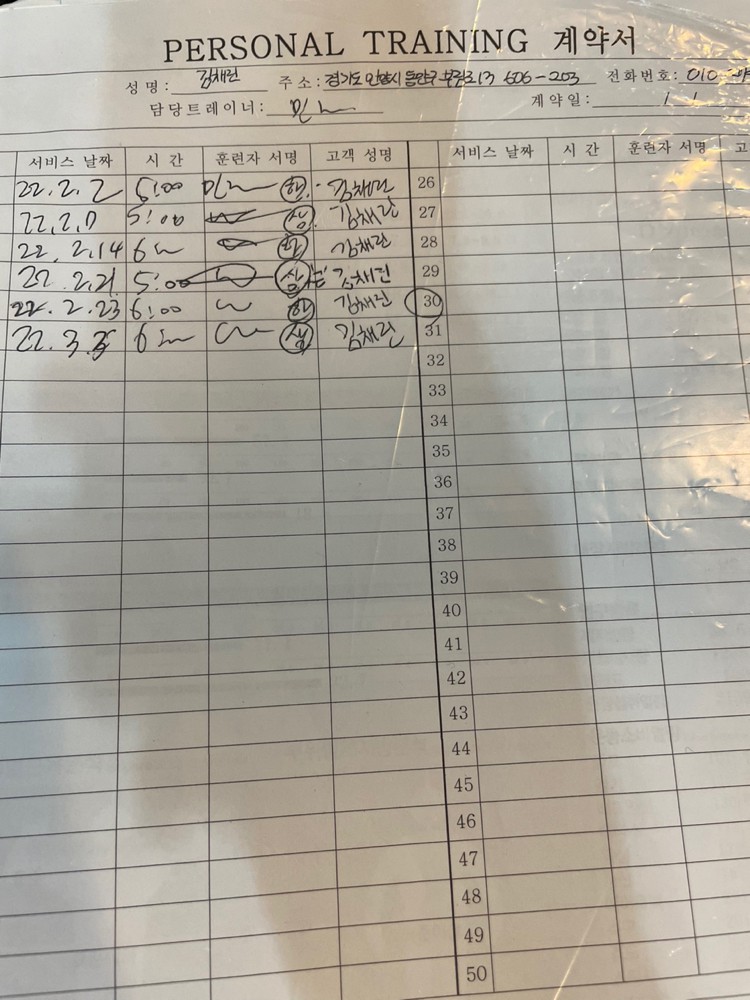 PERSONAL TRAINING 계약서
성 명 : 김채린 주 소 : 경기도 안양시 동안구 부림로13 606-203 전화번호 : 010
담당트레이너 : 계약일 : / /
서비스 날짜 시 간 훈련자 서명 고객 성명 서비스 날짜 시 간 훈련자 서명 고
22. 2. 2 5:00 김채린 26
22. 2. 7 5:00 김채린 27
22. 2. 14 6 김채린 28
22. 2. 21 5:00 김채린 29
22. 2. 23 6:00 김채린 30
22. 3. 6 김채린 31
32
33
34
35
36
37
38
39
40
41
42
43
44
45
46
47
48
49
50